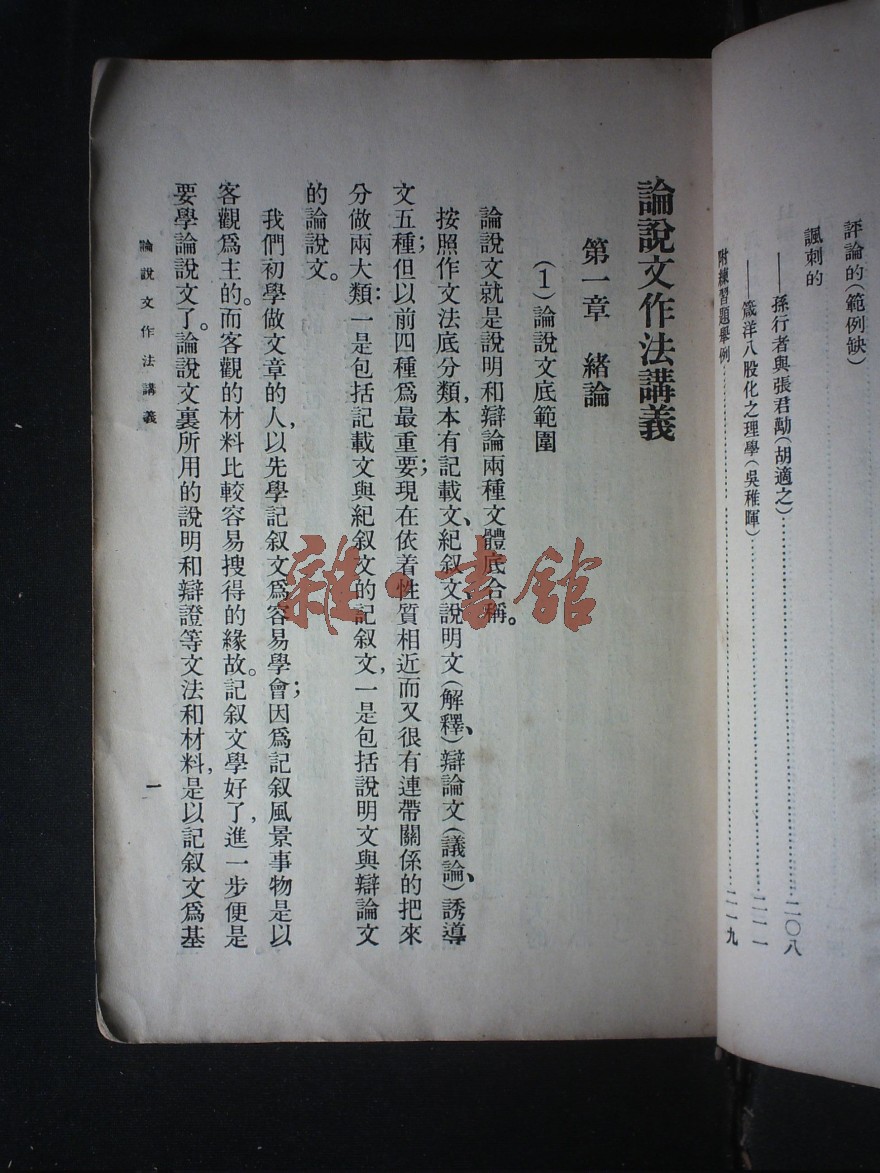 評論的(範例缺)
諷刺的
——孫行者與張君勱(胡適之)……二〇八
——箴洋八股化之理學(吳稚暉)……二一一
附練習題舉例……二一九
論說文作法講義
第一章 緒論
(1)論說文底範圍
論說文就是說明和辯論兩種文體底合稱。
按照作文法底分類,本有記載文、紀叙文、說明文(解釋)、辯論文(議論)、誘導
文五種;但以前四種爲最重要;現在依着性質相近而又很有連帶關係的把來
分做兩大類:一是包括記載文與紀叙文的記叙文,一是包括說明文與辯論文
的論說文。
我們初學做文章的人,以先學記叙文爲容易學會;因爲記叙風景事物是以
客觀爲主的。而客觀的材料比較容易搜得的緣故。記叙文學好了,進一步便是
要學論說文了。論說文裏所用的說明和辯證等文法和材料,是以記叙文爲基
論說文作法講義
一
雜·書館